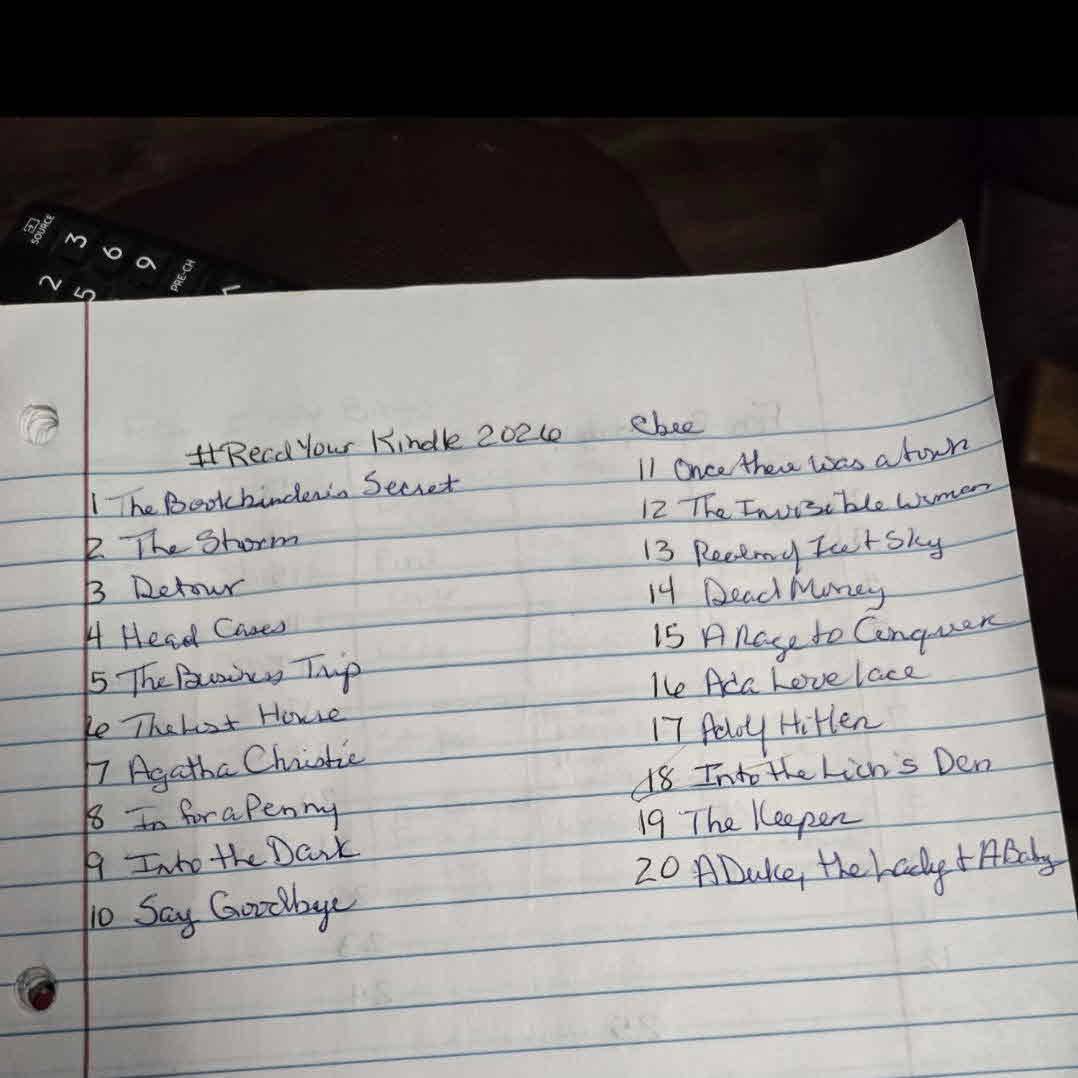 SOURCE
2 3
5 6
9
PRE-CH
#ReadYour Kindle 2026
1 The Bookbinder's Secret
2 The Storm
3 Detour
4 Head Cases
5 The Business Trip
6 The Last House
7 Agatha Christie
8 In for a Penny
9 Into the Dark
10 Say Goodbye
11 Once there was a town
12 The Invisible Woman
13 Realm of Ice + Sky
14 Dead Money
15 A Rage to Conquer
16 Ada Lovelace
17 Adolf Hitler
18 Into the Lion's Den
19 The Keeper
20 A Duke, the Lady + A Baby